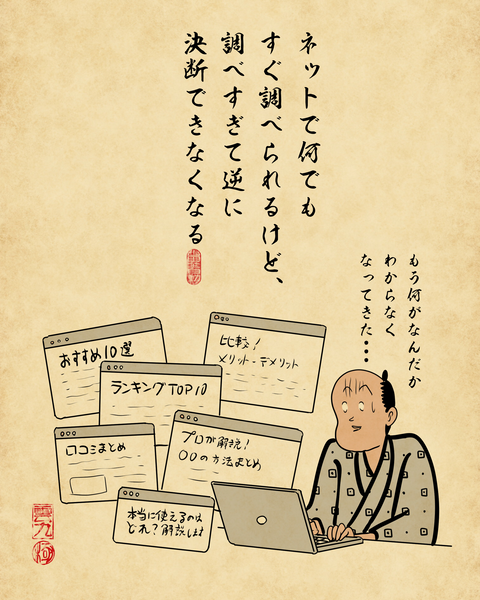 ネットで何でも
すぐ調べられるけど、
調べすぎて逆に
決断できなくなる
もう何がなんだか
わからなく
なってきた・・・
おすすめ10選
比較！
メリット・デメリット
ランキングTOP10
口コミまとめ
プロが解説！
〇〇の方法まとめ
本当に使えるのは
どれ？解説します